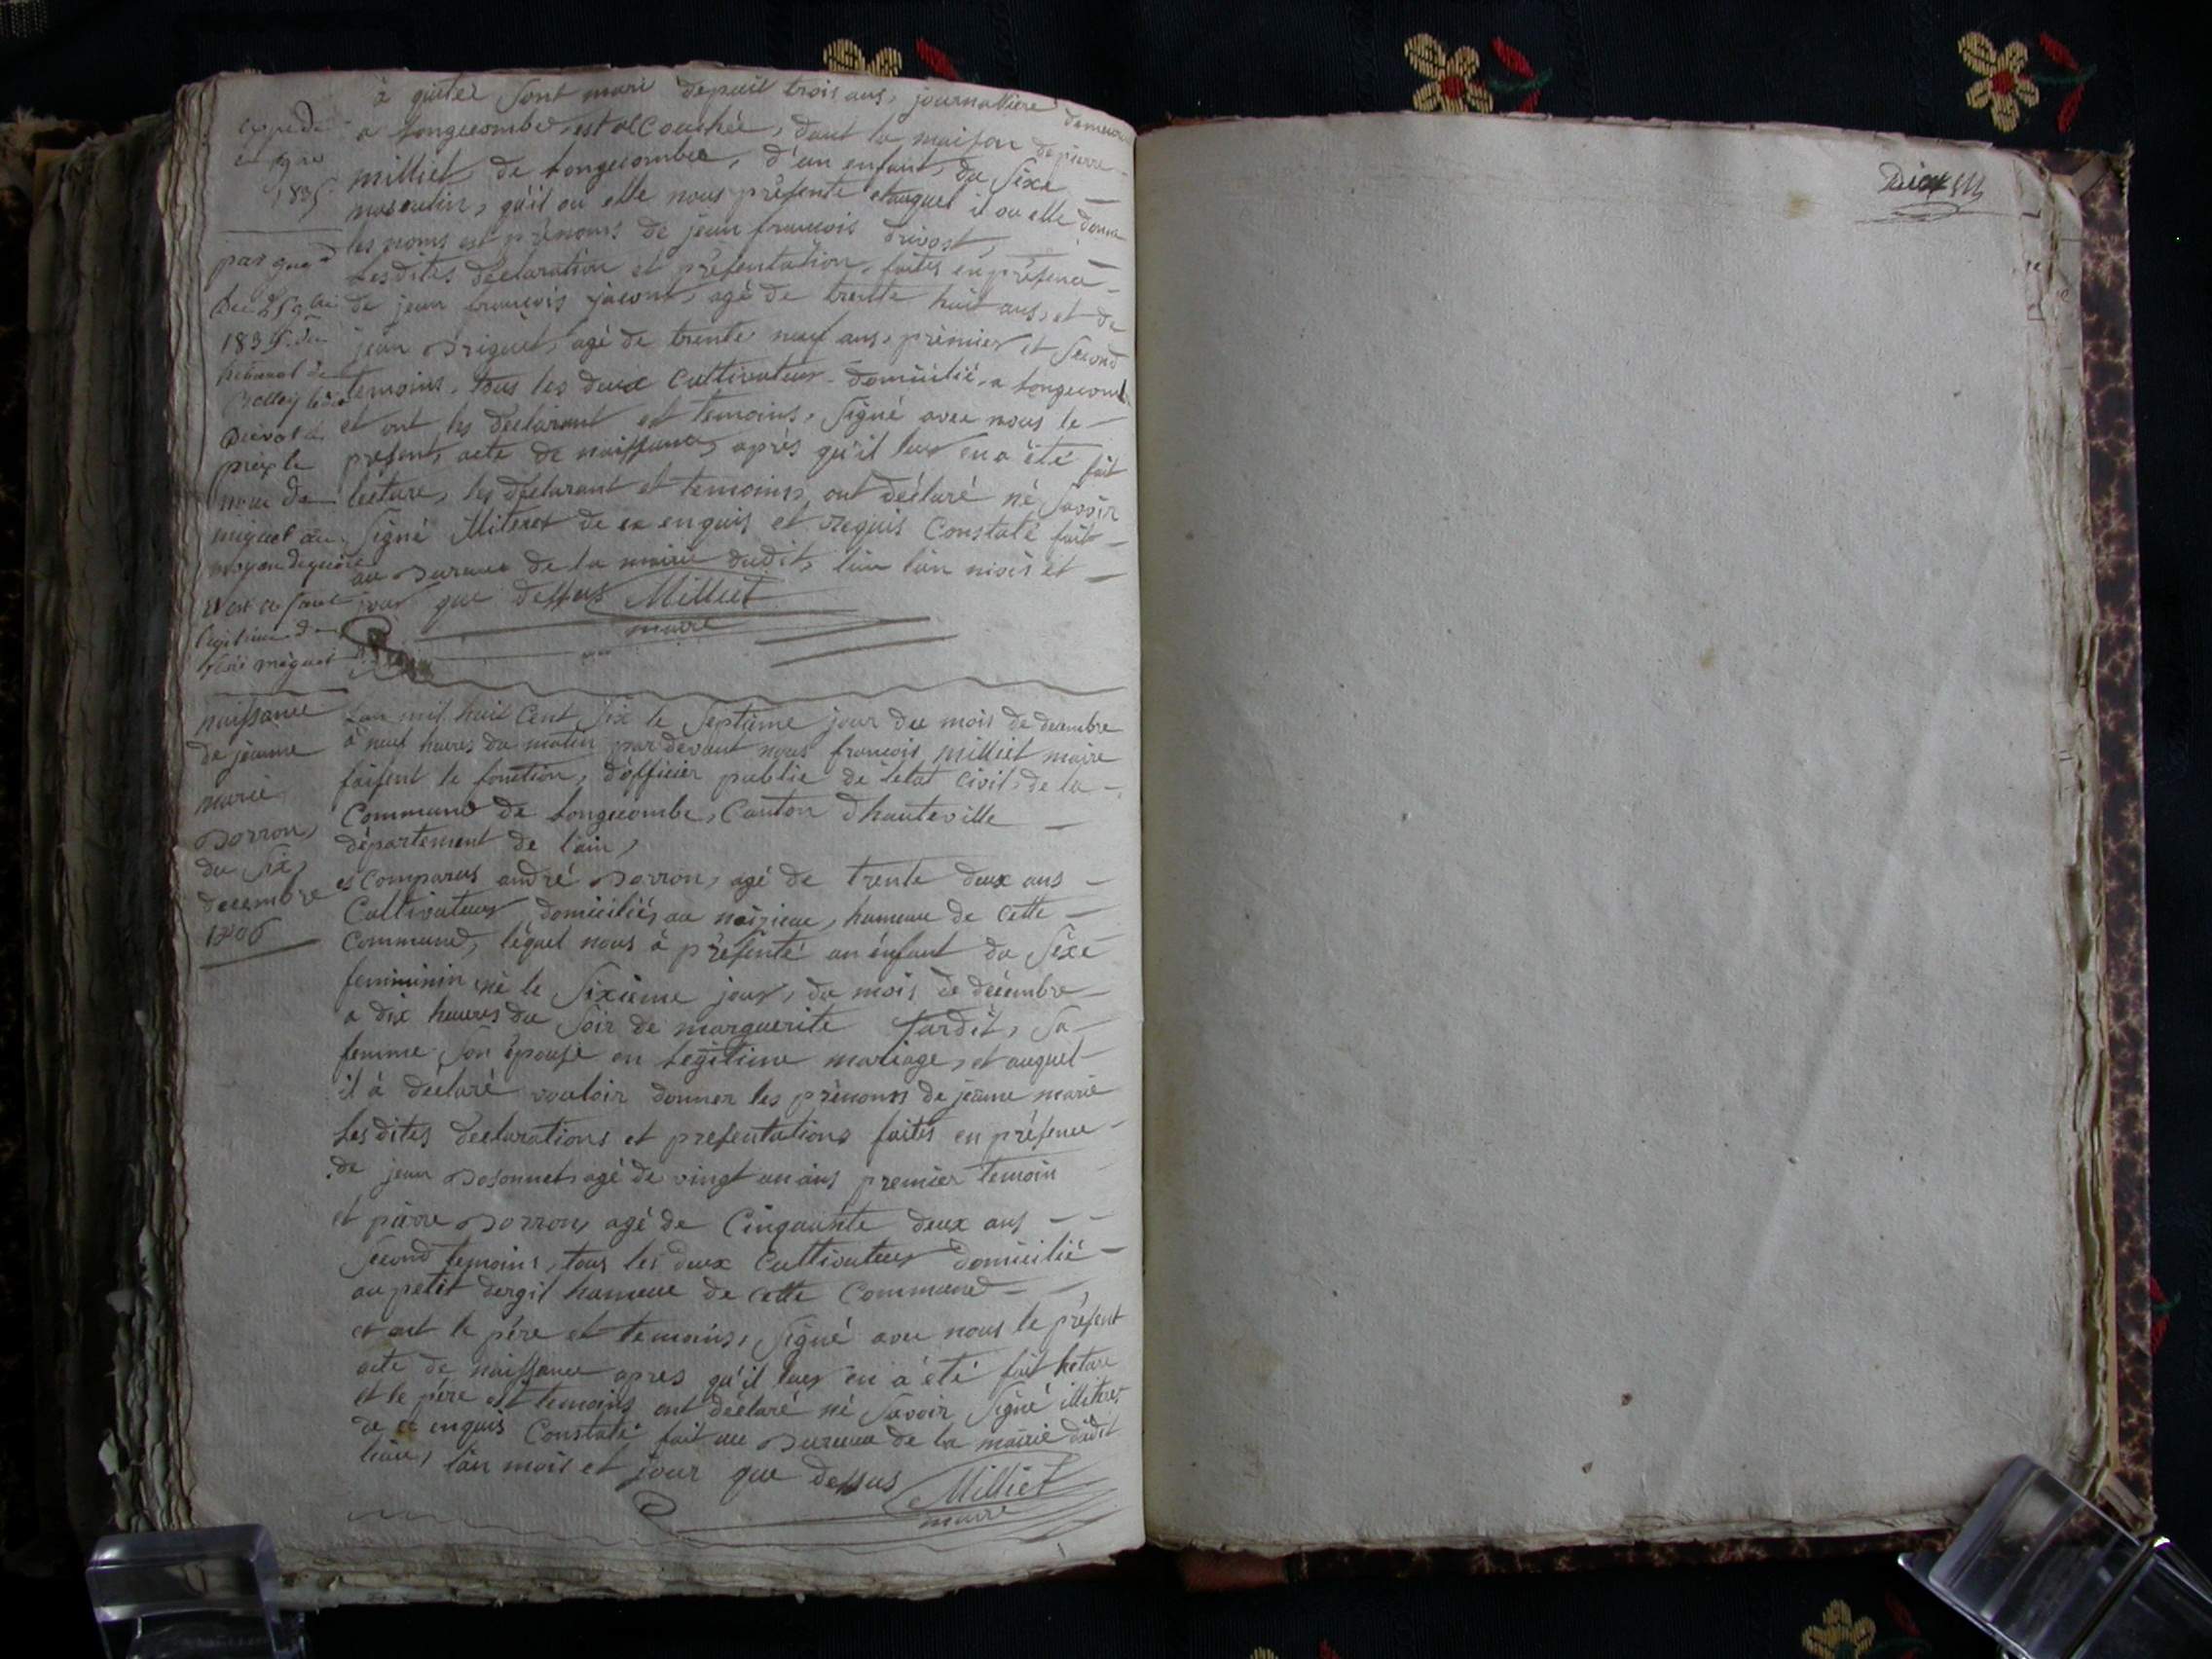 à quitée sont mari depuit trois ans, journalliere demeura
a Longecombe, est alcouchée, dant la maison de pierre
milliet, de Longecombe, d'un enfant, du sixe
masculin, qu'il ou elle nous présente et auquel il ou elle donne
les noms est prénoms de jean francois
Les dites déclaration et présentation, faites en présence
de jean francois jacont, agé de trente huit ans, et de
jean Briguet, agé de trente neuf ans, prémier et second
temoins, tous les deux Cultivateur domicilié a Longecombe
et ont les déclarant et temoins, signé avec nous le
present acte de naissance, après qu'il leur en a été fait
lecture, les déclarant et temoins, ont déclaré né savoir
signé de ce enquis et requis Constaté fait
au Bureau de la mairie dudit, lieu l'an mois et
jour que dessus Milliet
maire
expedié
1835
par
1835 du
tribunal de
Belley
le
nom de
miguet au
enfant
legitime de
miguet
naissance
de jeanne
marie
Borron,
du six
decembre
1806
Lan mil huit Cent six le Septième jour du mois de decembre
à neuf heures du matin par devant nous francois milliet maire
faisent le fonction, d'officier public de l'etat Civil, de la
Commune de Longecombe, Canton dhauteville
département de l'ain,
es Comparus andré Borron, agé de trente deux ans
Cultivateur, domiciliés au hameau de Cette
Commune, léquel nous à présenté un énfant du Séxe
femininin né le Sixième jour, du mois de décembre
a dix heures du Soir de marguerite Tardit, Sa
femme Son épouse en Legitime mariage, et auquel
il à déclaré vouloir donner les prénoms de jeanne marie
Les dites declarations et presentations faites en présence
de jean Bosonnet agé de vingt un ans premier temoin
et pierre Borron, agé de Cinquante deux ans
Second temoins, tous les deux Cultivateur domicilié
au petit dergil hameau de Cette Commune
et ont le pére et temoins, Signé avec nous le présent
acte de naissance apres qu'il leur en à été fait lecture
et le pére est temoins ont déclaré né Savoir Signé
de ce enquis Constaté fait au Bureau de la mairie dudit
lieu, l'an mois et jour que dessus Milliet
maire